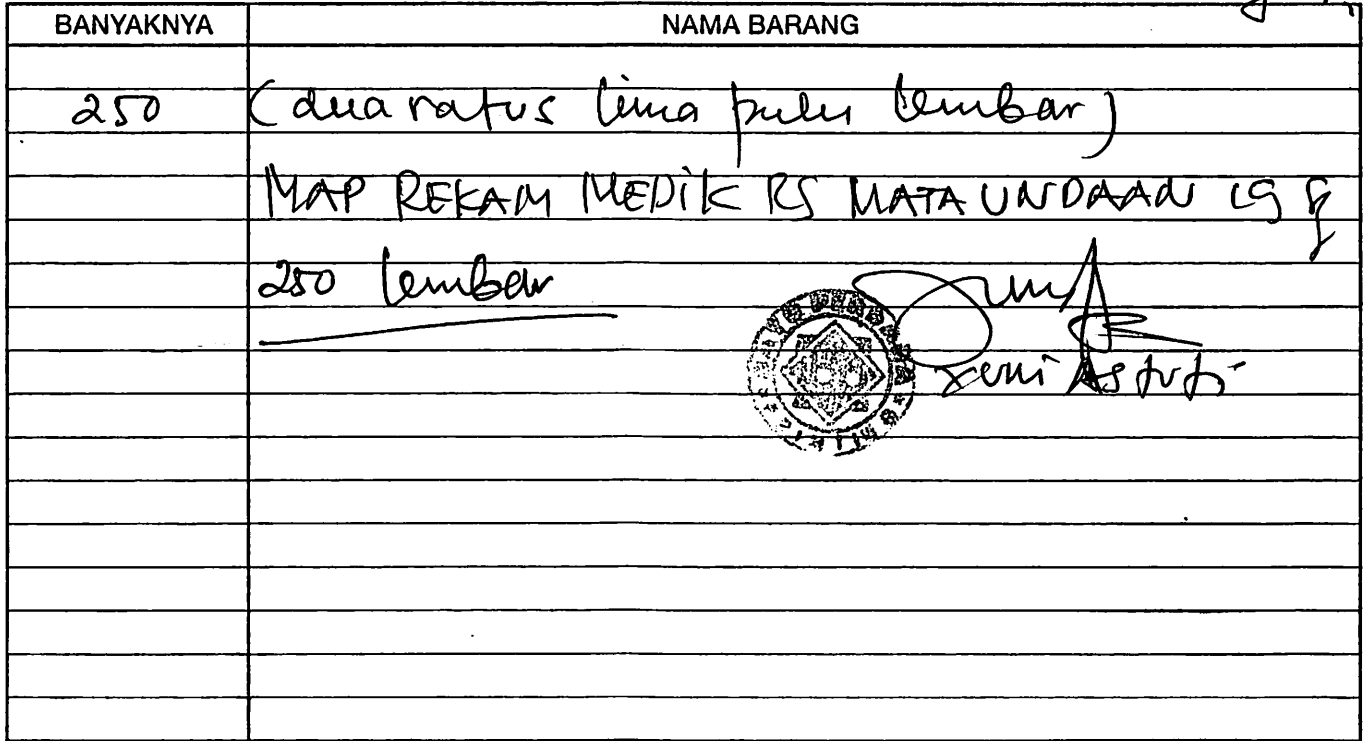 BANYAKNYA NAMA BARANG
250 (dua ratus lima pulu lembar)
MAP REKAM MEDIK RS MATA UNDAAN
250 lembar
Astuti